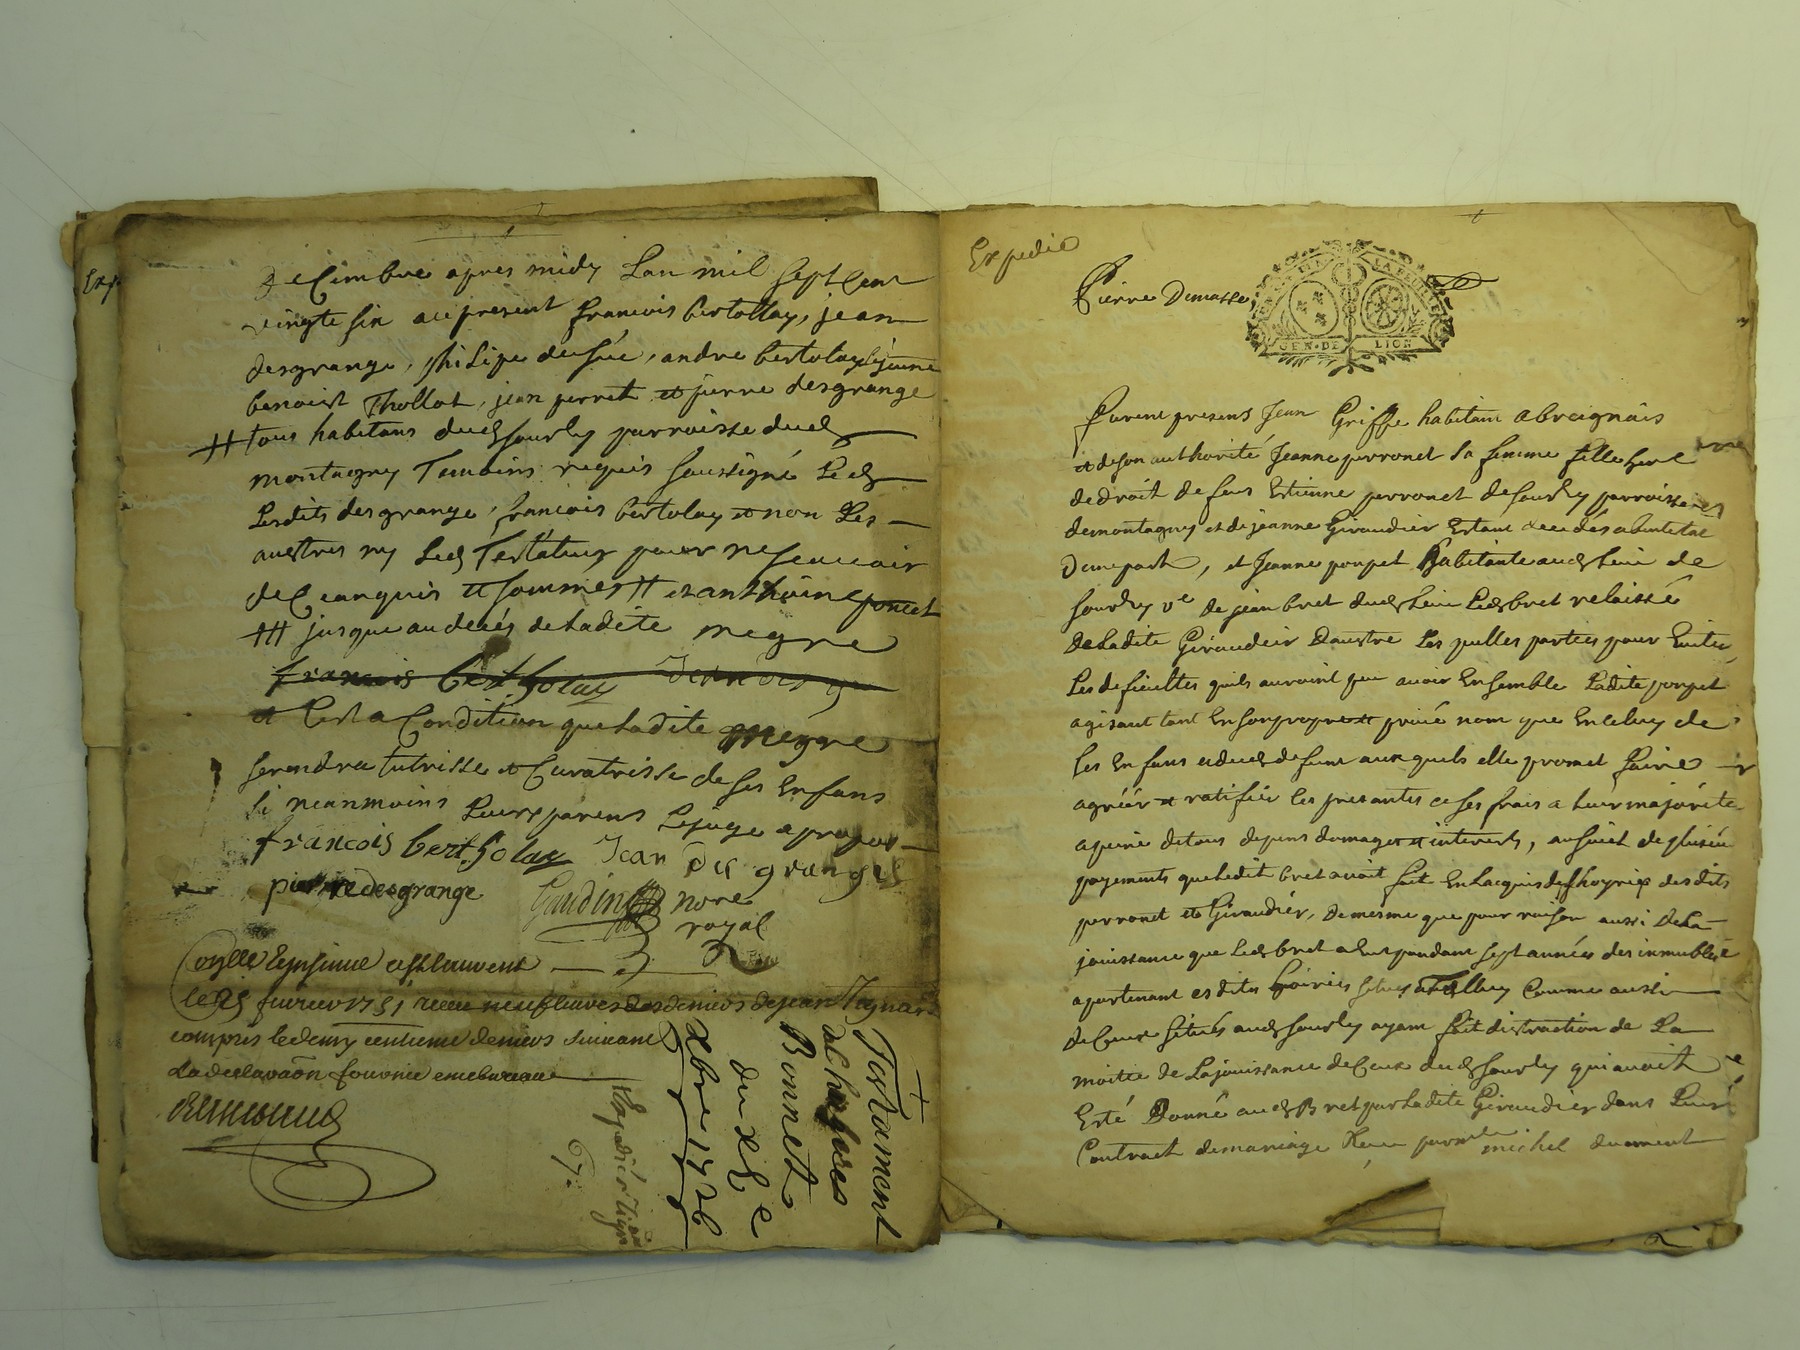 decembre apres midy Lan mil sept cent
vingte six au present francois bertollay, jean
desgrange, philipe , andre bertolay le jeune
benoist Thollot, jean perret et pierre desgrange
# tous habitans dud Sourly parroisse dud
montagny Temoins requis soussigné Led
Lesdits desgrange, francois bertolay et non Les
austres ny Led Testateur pour ne scavoir
de ce anquis et sommes # et anthoine poncet
## jusque au deces de Ladite megne
francois berthollay Jean des g
et C'est a Condition que Ladite megne
se rendra tutrisse et Curatrisse de ses Enfans
Si neanmoins Leurs parens Le juge a propos
francois berthollay Jean Des granges
pierre desgrange Gaudin nore
royal
Controllé Et insinué a st Lauvent
le 25 fevrier 1751 receu neuf livres des deniers de jean Magnard
compris le demy centieme denier suivant
La declaraon fournie en ce bureau
Testament
de
Bonnet
du xe
xbre 1726
Expedié
Expedié
Pierre Demasse
GEN. DE LION
Furent presens Jean Griffe habitant a breignais
et de son authorité Jeanne perronet sa femme fille here
de droit de feus Estienne perronet de Sourly parroisse
de montagny et de jeanne Giraudier Estant decedés abintestat
D'une part, et Jeanne poupet habitante aud lieu de
Sourly ve de jean bret dud lieu Led bret relaissé
de Ladite Giraudeir D'austre Les quelles parties pour Eviter
Les deficultes quils auroint peu avoir Ensemble Ladite poupet
agisant tant En son propre et privé nom que En celuy de
ses Enfans et dud defunt aux quels elle promet faire
agréér et ratifiér les presantes a ses frais a leur majorite
a peine de tous depens domages et interests, au sujet de plusieu
payements que Ledit bret avoit fait En L'acquis de hoyrie desdits
perronet et Giraudiér, de mesme que pour raison aussi de La
jouissance que Led bret a Eu pendant sept années des inmubles
apartenant es dites hoiries situés a Comme aussi
de Ceux situés aud Sourly ayant fait distraction de La
moitie de La jouissance de Ceux dud Sourly qui avoit
Esté Donné aud Bret par Ladite Giraudier dans Leur
Contract de mariage Receu par me michel duement